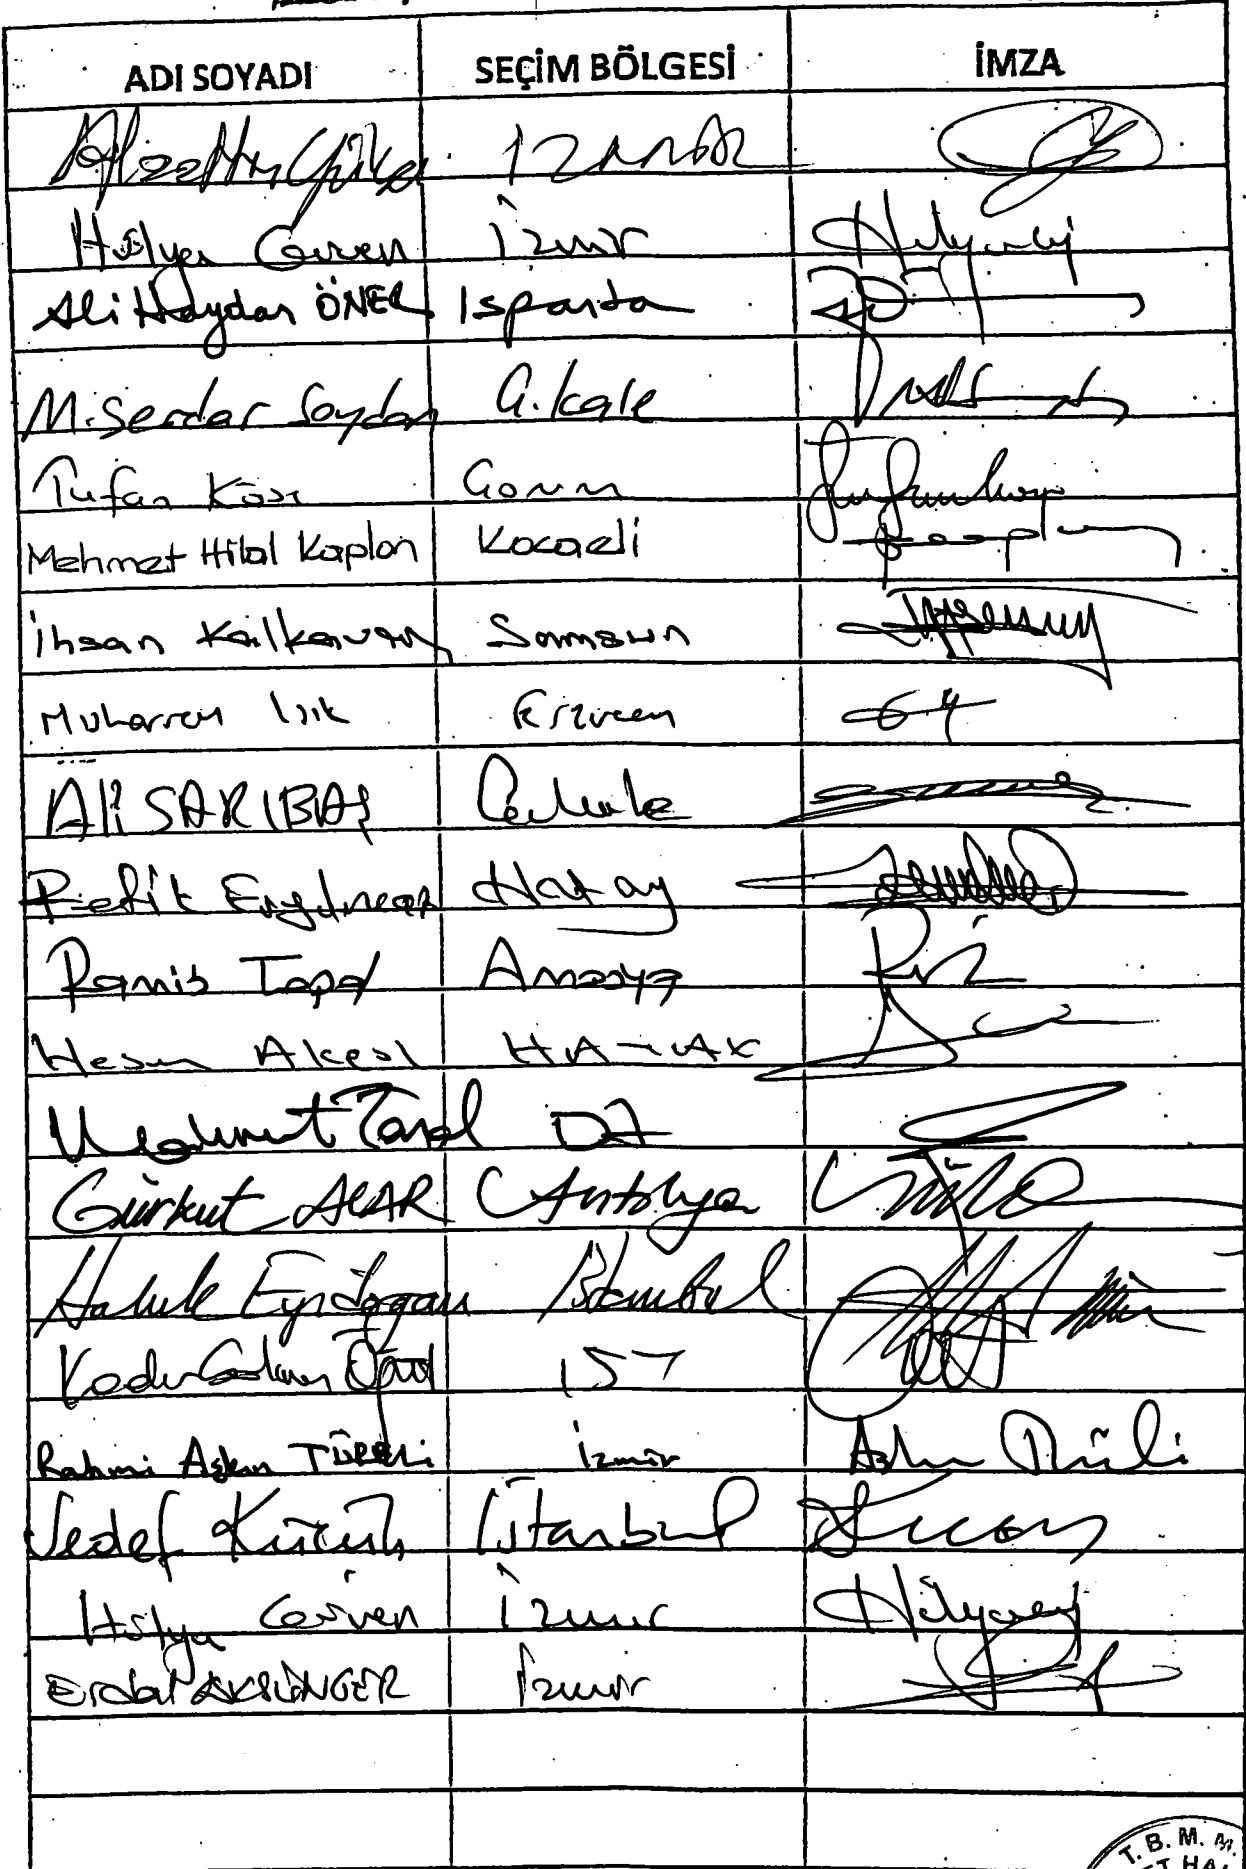 ADI SOYADI SEÇİM BÖLGESİ İMZA
İZMİR
Hülya Güven İzmir
Ali Haydar ÖNER Isparta
M. Serdar Soydan Ç.kale
Tufan Köse Çorum
Mehmet Hilal Kaplan Kocaeli
İhsan Kalkavan Samsun
Muharrem Işık Erzincan
Ali SARIBAŞ Ç.kale
Refik Eryılmaz Hatay
Ramis Topal Amasya
Hasan Akgöl HATAY
Mahmut Tanal
Gürkut ACAR Antalya
Haluk Eyidoğan İstanbul
Kadir Gökmen Öğüt İST
Rahmi Aşkın TÜRELİ İzmir
Sedef Küçük İstanbul
Hülya Güven İzmir
Erdal AKSÜNGER İzmir
T. B. M. M.